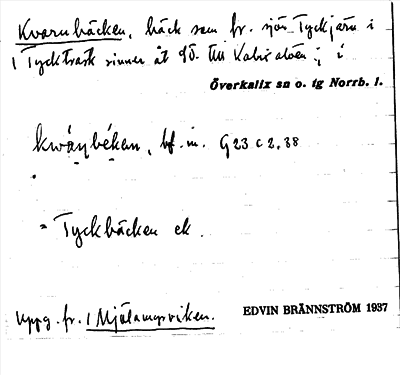 Kvarnbäcken, bäck som fr. sjön Tyckjärn i
1 Tyckträsk rinner åt SO. till Kalixälven; i
Överkalix sn o. tg Norrb. l.
kwá̤ṇbékan, bf. m. G23 c 2,38
= Tyckbäcken ek.
Uppg. fr. 1 Mjölamyrviken.
EDVIN BRÄNNSTRÖM 1937